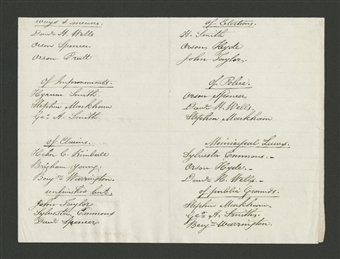 Ways & means.
Danl H. Wells
Orson Spencer
Orson Pratt
of Improvements.
Hyrum Smith.
Stephen Markham
Geo A. Smith.
of Claims.
Heber C. Kimball
Brigham Young.
Benjn Warrington.
unfinished
John Taylor
Sylvester Emmons
Danl Spencer
of Elections.
W. Smith
Orson Hyde
John Taylor.
of Police.
Orson Spencer.
Danl H. Wells.
Stephen Markham
Municipal Laws.
Sylvester Emmons.-
Orson Hyde.-
Danl H. Wells.-
of public Grounds.
Stephen Markham.
Geo A. Smith.
Benjn Warrington.